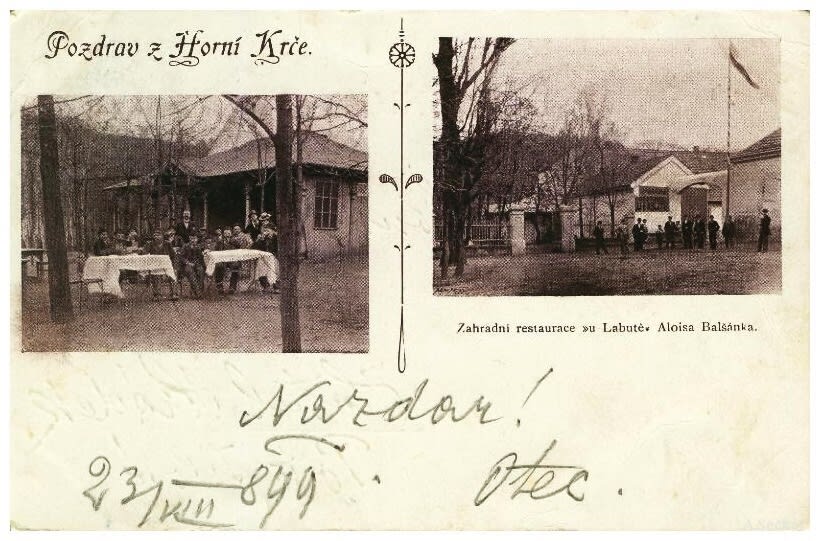 Pozdrav z Horní Krče.
Zahradní restaurace »u Labutě« Aloisa Balšánka.
Nazdar!
23/VIII 899. Otec.